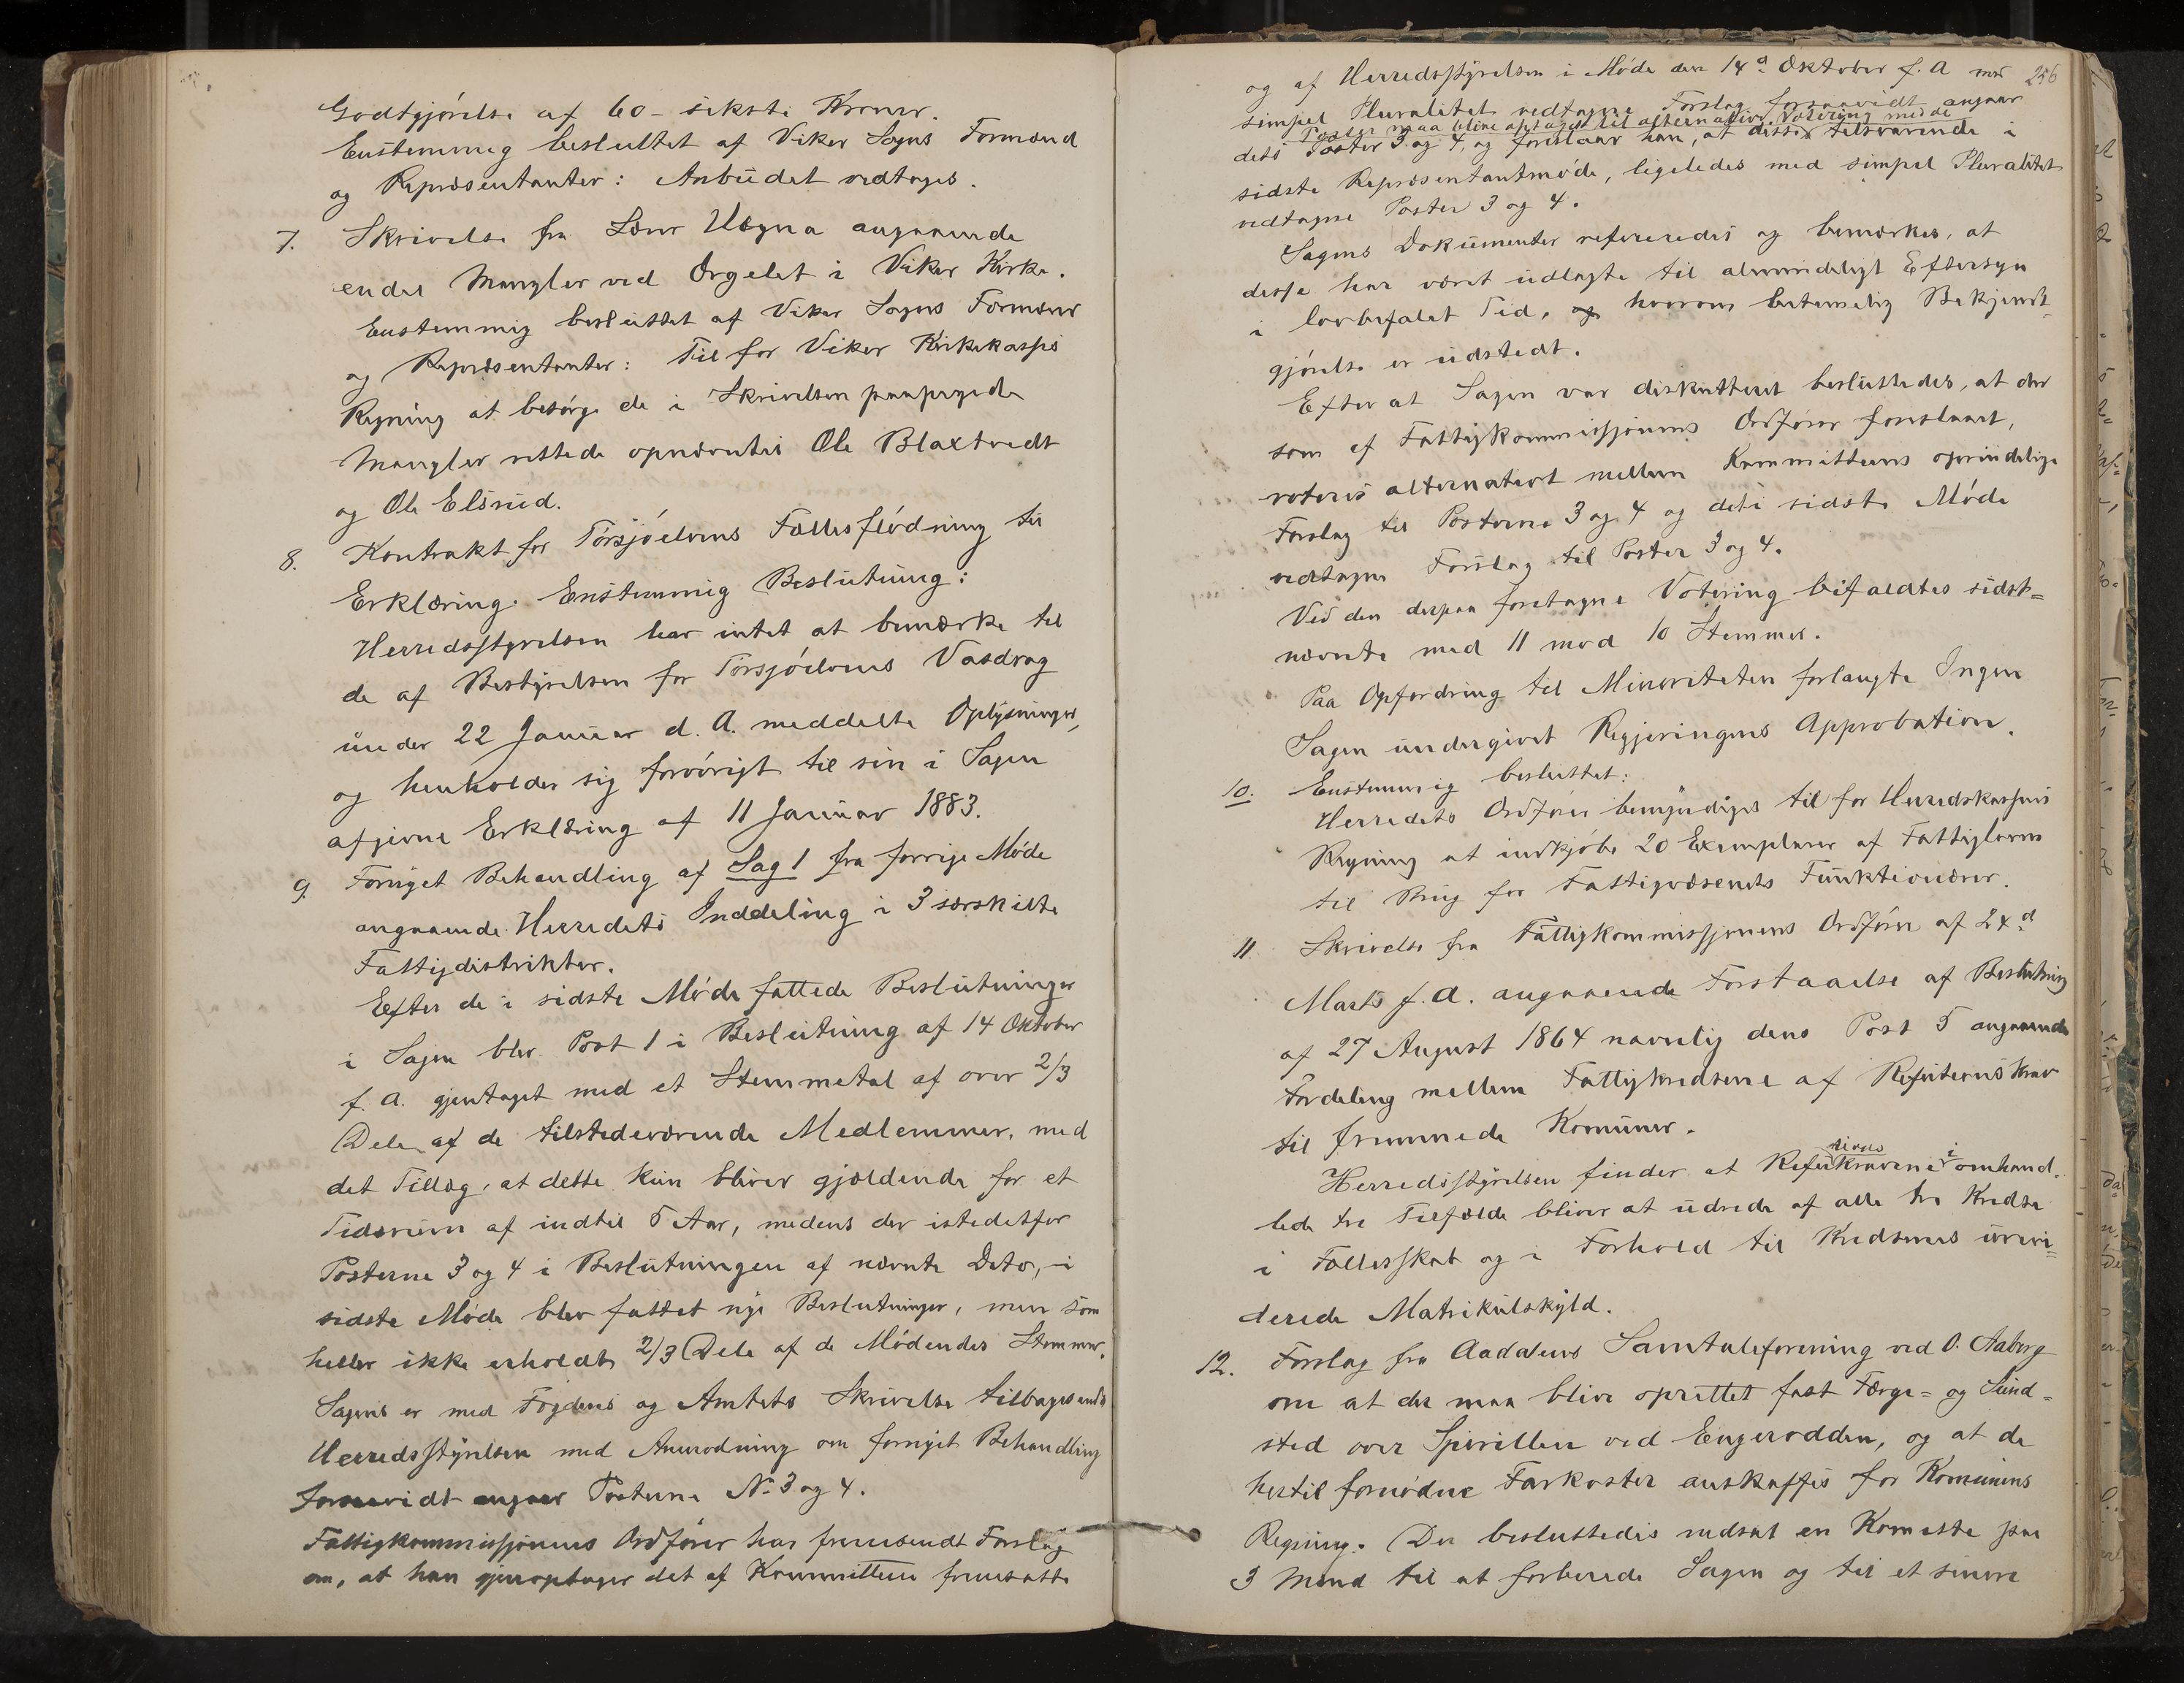 Godtgjörelse af 60 - seksti Kroner.
Enstemmig besluttet af Viker Sogns Formænd
og Repræsentanter: Anbudet vedtages.
7. Skrivelse fra Lærer Uægna angaaende
endel Mangler ved Orgelet i Viker Kirke.
Enstemmig besluttet af Viker Sogns Formænd
og Repræsentanter: Til for Viker Kirkekasses
Regning at besörge de i Skrivelsen paapegede
Mangler rettede opnævntes Ole Blaxtvedt
og Ole Elsrud.
8. Kontrakt for Tørsjöelvens Fællesflödning til
Erklæring. Enstemmig Beslutning:
Herredsstyrelsen har intet at bemærke til
de af Bestyrelsen for Tørsjöelvens Vasdrag
under 22 Januar d. A. meddelte Oplysninger,
og henholder sig forövrigt til sin i Sagen
afgivne Erklæring af 11 Januar 1883.
9. Fornyet Behandling af Sag 1 fra forrige Möde
angaaende Herredets Inddeling i 3 særskilte
Fattigdistrikter.
Efter de i sidste Möde fattede Beslutninger
i Sagen blev Post 1 i Beslutning af 14 Oktober
f. A. gjentaget med et Stemmetal af over 2/3
Dele af de tilstedeværende Medlemmer, med
det Tillæg, at dette kun bliver gjældende for et
Tidsrum af indtil 5 Aar, medens der istedetfor
Posterne 3 og 4 i Beslutningen af nævnte Dato, i
sidste Möde blev fattet nye Beslutninger, men som
heller ikke erholdt 2/3 Dele af de Mödendes Stemmer.
Sagen er med Fogdens og Amtets Skrivelse tilbagesendt
Herredsstyrelsen med Anmodning om fornyet Behandling
forsaavidt angaar Posterne No 3 og 4.
Fattigkommissjonens Ordförer har fremsendt Forslag
om, at han gjenoptager det af Kommitteen fremsatte
256
og af Herredsstyrelsen i Möde den 14d Oktober f. A med
simpel Pluralitet vedtagne Forslag forsaavidt angaar
Poster maa blive optaget til alternativ Votering med de
dets Poster 3 og 4, og foreslaar han, at disse tilsvarende i
sidste Repræsentantmöde, ligeledes med simpel Pluralitet
vedtagne Poster 3 og 4.
Sagens Dokumenter refereredes og bemærkes, at
disse har været udlagte til almindeligt Eftersyn
i lovbefalet Tid, hvorom betimelig Bekjendt-
gjörelse er udstedt.
Efter at Sagen var diskutteret besluttedes, at der
som af Fattigkommissjonens Ordförer foreslaaet,
voteres alternativt mellem Kommitteens oprindelige
Forslag til Posterne 3 og 4 og det i sidste Möde
vedtagne Forslag til Poster 3 og 4.
Ved den derpaa foretagne Votering bifaldtes sidst-
nævnte med 11 mod 10 Stemmer.
Paa Opfordring til Minoriteten forlangte Ingen
Sagen undergivet Regjeringens Approbation.
10. Enstemmig besluttet:
Herredets Ordförer bemyndiges til for Herredskassens
Regning at indkjöbe 20 Exemplarer af Fattigloven
til Brug for Fattigvæsenets Funktionærer.
11 Skrivelse fra Fattigkommissjonens Ordförer af 24d
Marts f. A. angaaende Forstaaelse af Beslutning
af 27 August 1864 navnlig dens Post 5 angaaende
Fordeling mellem Fattigkredsene af Refusionskrav
til fremmede Komuner.
Herredsstyrelsen finder at Refusionskravene i omhand-
lede tre Tilfælde bliver at udrede af alle tre Kredse
i Fællesskab og i Forhold til Kredsenes urevi-
derede Matrikulskyld.
12. Forslag fra Aadalens Samtaleforening ved O. Aaberg
om at der maa blive oprettet fast Færge- og Sund-
sted over Spirillen ved Engerodden, og at de
hertil fornödne Farkoster anskaffes for Komunens
Regning. Der besluttedes nedsat en Komite paa
3 Mænd til at forberede Sagen og til et senere